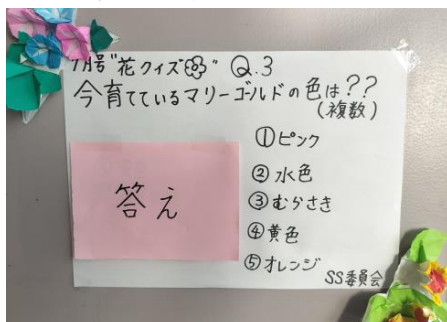 7月号"花クイズ" Q.3
今育てているマリーゴールドの色は??
(複数)
①ピンク
②水色
③むらさき
④黄色
⑤オレンジ
答え
SS委員会